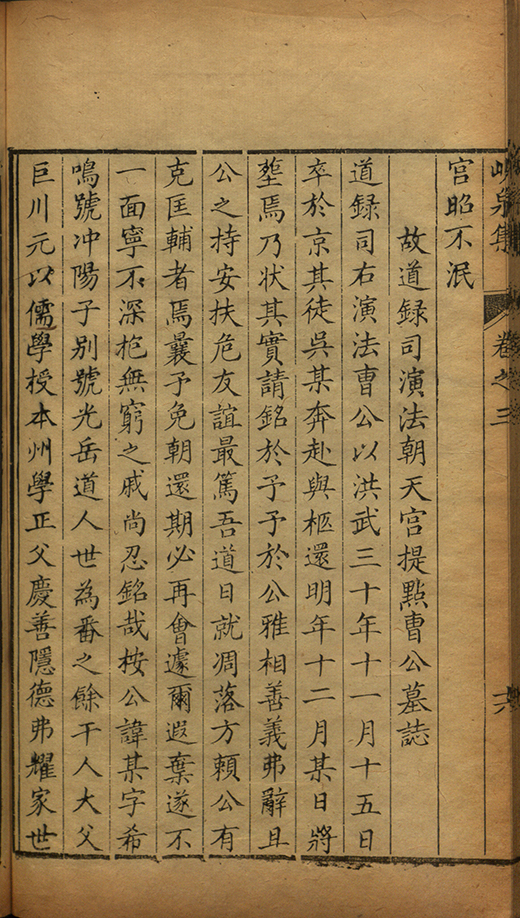 峴泉集 卷之三 六
宮昭不泯
故道録司演法朝天宫提點曹公墓誌
道録司右演法曹公以洪武三十年十一月十五日
卒於京其徒吳某奔赴與柩還明年十二月某日將
塟焉乃状其實請銘於予予於公雅相善義弗辭且
公之持安扶危友誼最篤吾道日就凋落方頼公有
克匡輔者焉曩予免朝還期必再會遽爾遐棄遂不
一面寧不深抱無窮之戚尚忍銘哉桉公諱某字希
鳴號冲陽子别號光岳道人世為番之餘干人大父
巨川元以儒學授本州學正父慶善隱德弗耀家世